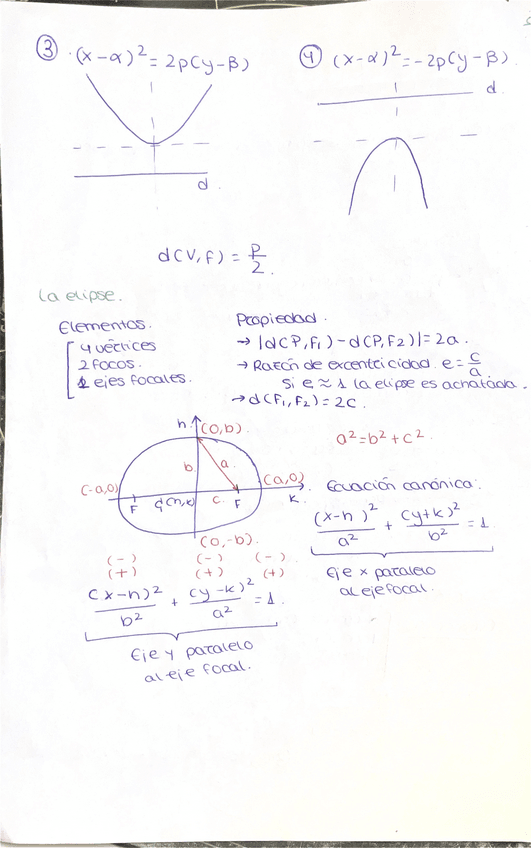 ③ · (x-α)² = 2p(y-β)
④ (x-α)² = -2p(y-β).
d.
d
d(V,F) = P/2.
La elipse.
Elementos.
4 vértices
2 focos.
2 ejes focales.
Propiedad.
→ |d(P,F₁) - d(P,F₂)| = 2a.
→ Razón de excentricidad. e = c/a.
Si e ≈ 1 la elipse es achatada.
→ d(F₁,F₂) = 2c.
a² = b² + c².
h (0,b).
b a.
(-a,0) (a,0)
F (h,k) c. F K.
(0,-b).
Ecuación canónica:
(x-h)²/a² + (y+k)²/b² = 1
Eje x paralelo
al eje focal.
(-) (-) (-)
(+) (+) (+)
(x-h)²/b² + (y-k)²/a² = 1.
Eje y paralelo
al eje focal.